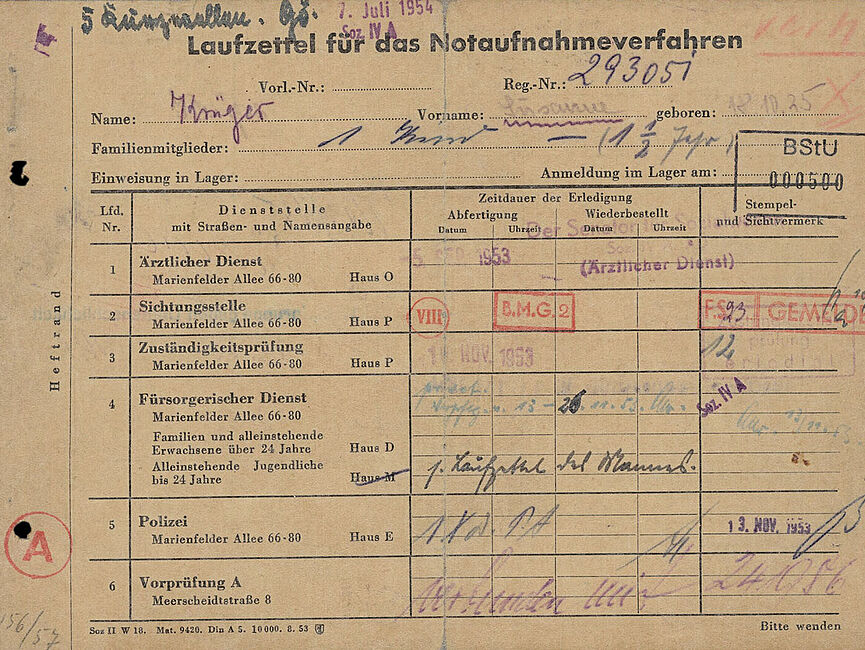 5 Kurzwellen. Gö. 7. Juli 1954
Soz. IV A
Laufzettel für das Notaufnahmeverfahren
Vorl.-Nr.: Reg.-Nr.: 293051
Name: Krüger Vorname: Susanne geboren: 18.10.25
Familienmitglieder: 1 Kind — (1 1/2 Jahr)
BStU
000500
Einweisung in Lager: Anmeldung im Lager am:
Lfd. Nr.
Dienststelle
mit Straßen- und Namensangabe
Zeitdauer der Erledigung
Abfertigung Wiederbestellt
Datum Uhrzeit Datum Uhrzeit
Stempel-
und Sichtvermerk
1 Ärztlicher Dienst
Marienfelder Allee 66-80 Haus O
1953
(Ärztlicher Dienst)
2 Sichtungsstelle
Marienfelder Allee 66-80 Haus P
VIII B.M.G. 2 F.S. 93 GEMELDE
3 Zuständigkeitsprüfung
Marienfelder Allee 66-80 Haus P
NOV. 1953
12
4 Fürsorgerischer Dienst
Marienfelder Allee 66-80
13 – 26.11.53
Soz. IV A
Familien und alleinstehende
Erwachsene über 24 Jahre Haus D
Alleinstehende Jugendliche
bis 24 Jahre Haus M
s. Laufzettel des Mannes.
5 Polizei
Marienfelder Allee 66-80 Haus E
13. NOV. 1953
6 Vorprüfung A
Meerscheidtstraße 8
verbunden mit 24086
Heftrand
A
156/57
Soz II W 18. Mat. 9420. Din A 5. 10000. 8. 53
Bitte wenden